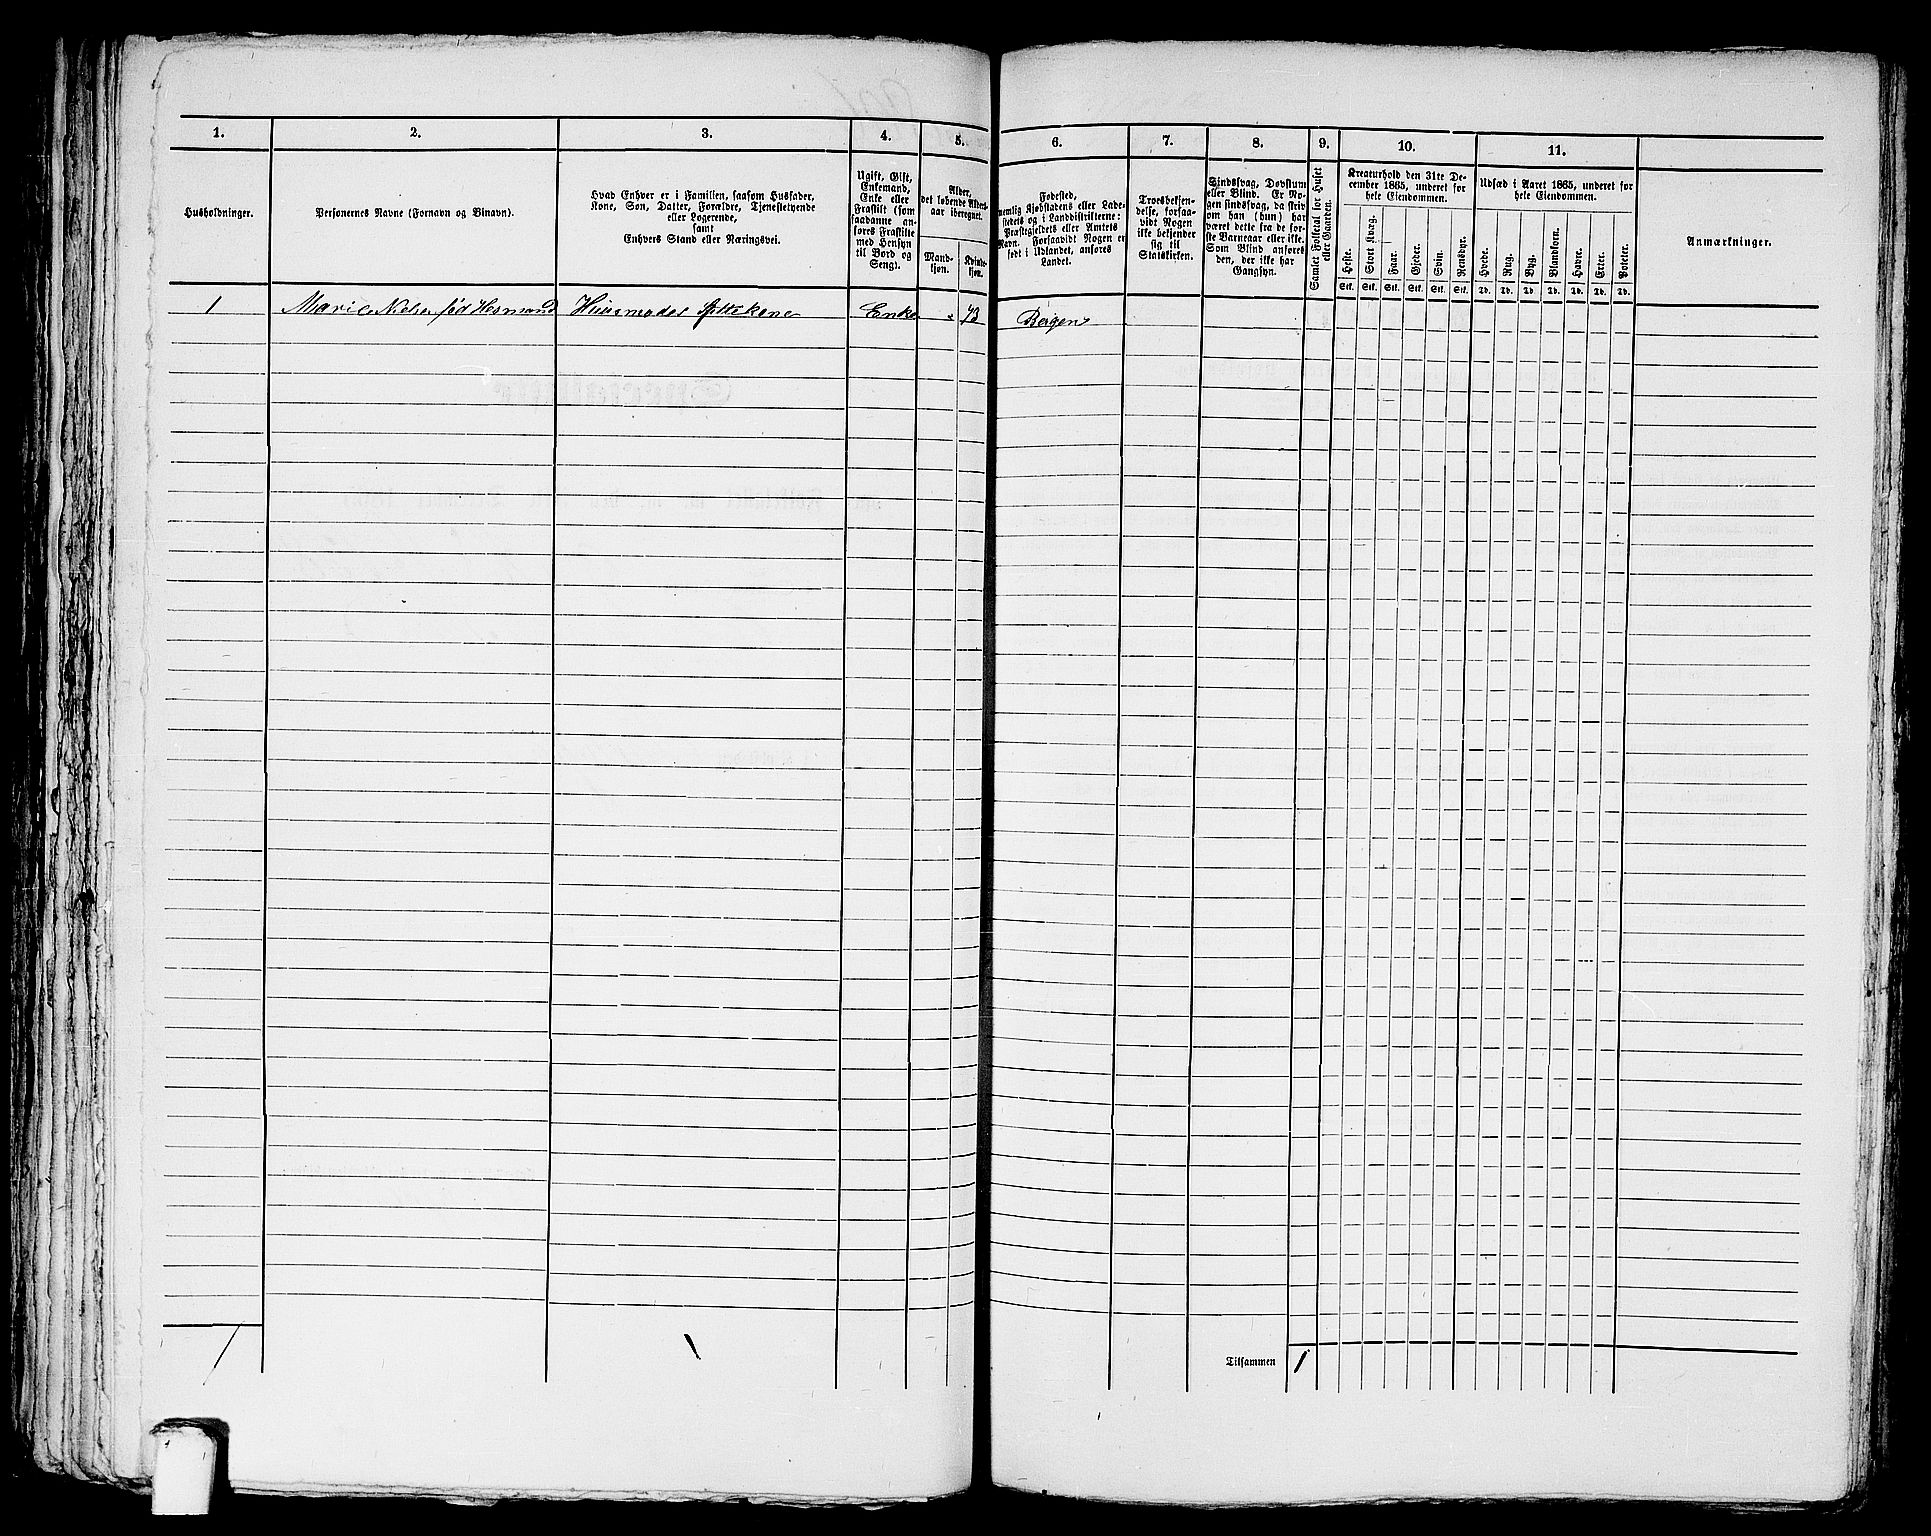 1. 2. 3. 4. 5. 6. 7. 8. 9. 10. 11.
Husholdninger.
Personernes Navne (Fornavn og Binavn).
Hvad Enhver er i Familien, saasom Husfader,
Kone, Søn, Datter, Forældre, Tjenestetyende
eller Logerende,
samt
Enhvers Stand eller Næringsvei.
Ugift, Gift,
Enkemand,
Enke eller
Fraskilt (som
saadanne an-
føres Fraskilte
med Hensyn
til Bord og
Seng).
Alder,
det løbende Alders-
aar iberegnet.
Mand-
kjøn.
Kvinde-
kjøn.
Fødested,
nemlig Kjøbstadens eller Lade-
stedets og i Landdistrikterne:
Præstegjeldets eller Amtets
Navn. Forsaavidt Nogen er
født i Udlandet, anføres
Landet.
Troesbekjen-
delse, forsaa-
vidt Nogen
ikke bekjender
sig til
Statskirken.
Sindssvag, Døvstum
eller Blind. Er No-
gen sindssvag, da skriv
om han (hun) har
været dette fra de før-
ste Barneaar eller ikke.
Som Blind anføres
den, der ikke har
Gangsyn.
Samlet Folketal for Huset
eller Gaarden.
Kreaturhold den 31te De-
cember 1865, underet for
hele Eiendommen.
Heste.
Stort Kvæg.
Faar.
Gjeder.
Svin.
Rensdyr.
Stk. Stk. Stk. Stk. Stk. Stk.
Udsæd i Aaret 1865, underet for
hele Eiendommen.
Hvede.
Rug.
Byg.
Blandkorn.
Havre.
Erter.
Poteter.
Td. Td. Td. Td. Td. Td. Td.
Anmærkninger.
1 Marie Nielsen fød Hesmand Huusmoder Enke 73 Bergen
Tilsammen 1